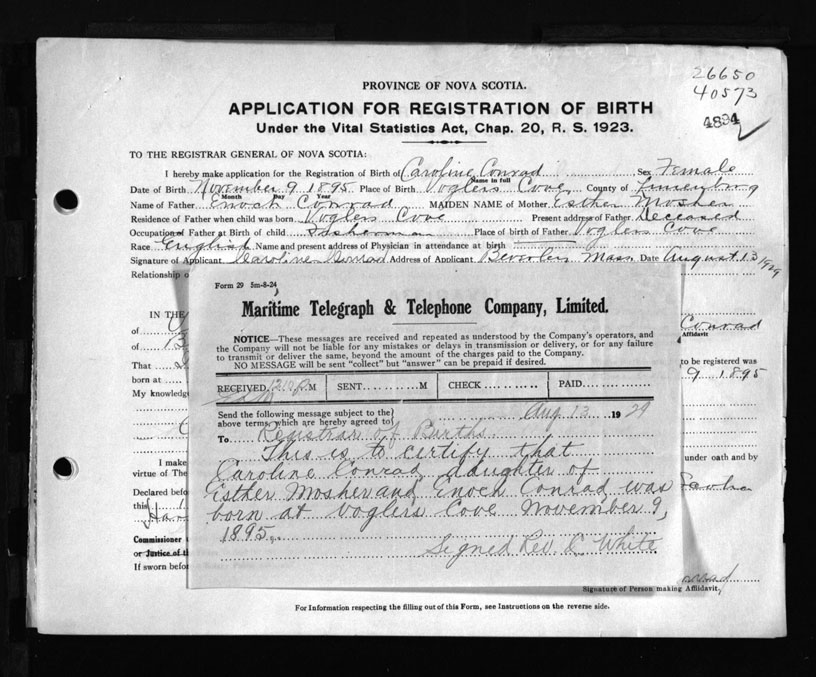 26650
40573
4894
PROVINCE OF NOVA SCOTIA.
APPLICATION FOR REGISTRATION OF BIRTH
Under the Vital Statistics Act, Chap. 20, R. S. 1923.
TO THE REGISTRAR GENERAL OF NOVA SCOTIA:
I hereby make application for the Registration of Birth of Caroline Conrad Sex Female
Name in full
Date of Birth November 9 1895 Place of Birth Voglers Cove, County of Lunenburg
Month Day Year
Name of Father Enoch Conrad MAIDEN NAME of Mother Esther Mosher
Residence of Father when child was born Voglers Cove Present address of Father Deceased
Occupation of Father at Birth of child Fisherman Place of birth of Father Voglers Cove
Race English Name and present address of Physician in attendance at birth
Signature of Applicant Caroline Conrad Address of Applicant Beverley Mass. Date August 13 1929
Relationship o
Form 29 5m-8-24
Maritime Telegraph & Telephone Company, Limited.
NOTICE—These messages are received and repeated as understood by the Company's operators, and
the Company will not be liable for any mistakes or delays in transmission or delivery, or for any failure
to transmit or deliver the same, beyond the amount of the charges paid to the Company.
NO MESSAGE will be sent "collect" but "answer" can be prepaid if desired.
RECEIVED M SENT M CHECK PAID
Send the following message subject to the
above terms, which are hereby agreed to
Aug 13 1929
To Registrar of Births
This is to certify that
Caroline Conrad daughter of
Esther Mosher and Enoch Conrad was
born at Voglers Cove November 9,
1895.
Signed Rev. C. White
IN THE
of
of
Conrad
Affidavit
That
to be registered was
born at
9 1895
My knowledg
I make
under oath and by
virtue of The
Declared befo
this
Commissioner
or Justice of th
If sworn befor
Signature of Person making Affidavit,
For Information respecting the filling out of this Form, see Instructions on the reverse side.